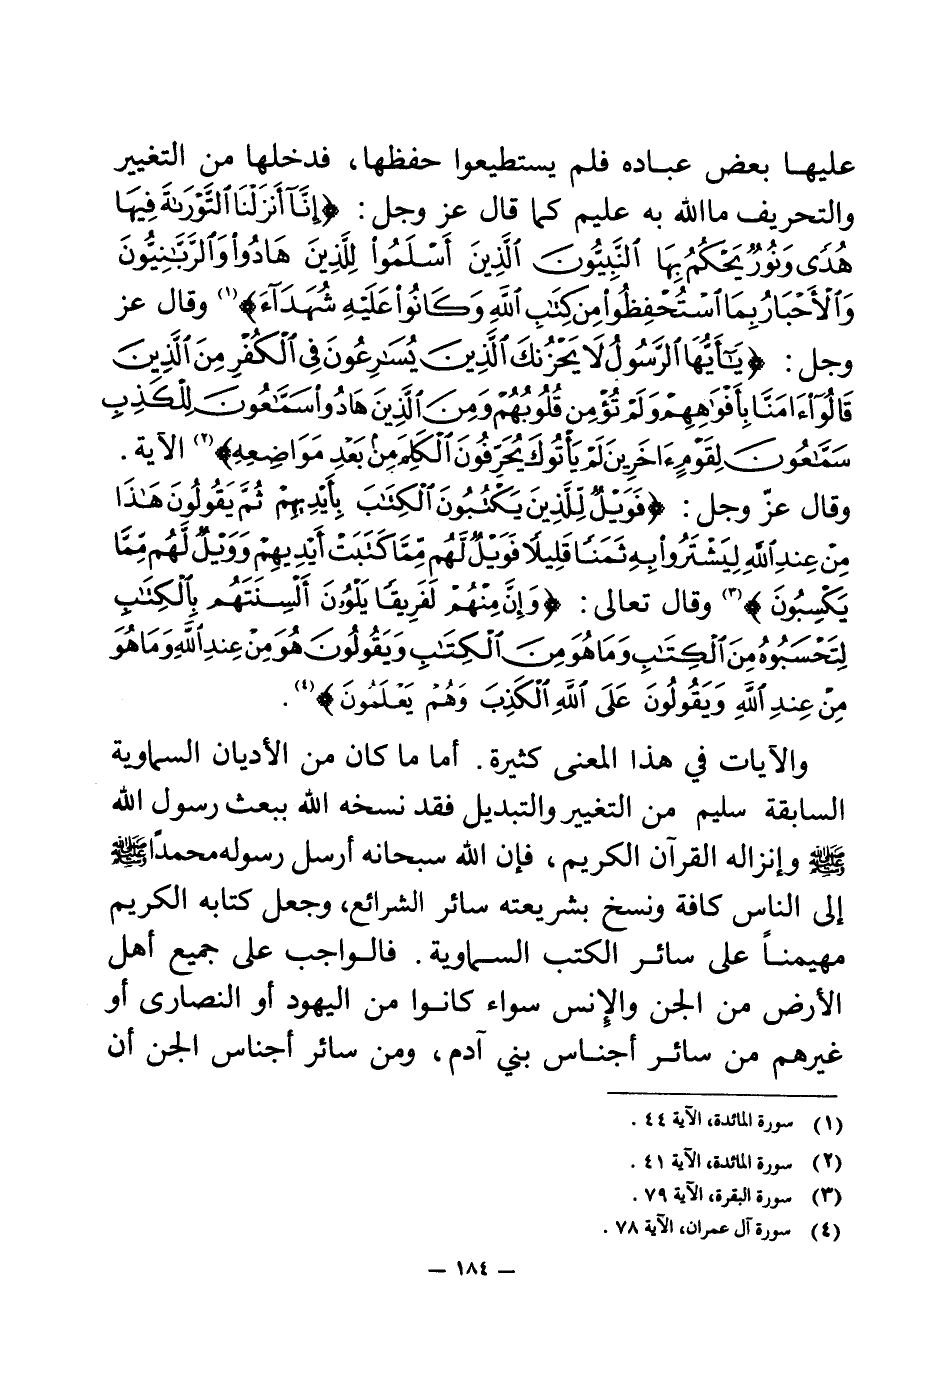 عليها بعض عباده فلم يستطيعوا حفظها، فدخلها من التغيير
والتحريف ماالله به عليم كما قال عز وجل: ﴿إِنَّآ أَنزَلْنَا ٱلتَّوْرَىٰةَ فِيهَا
هُدًى وَنُورٌ يَحْكُمُ بِهَا ٱلنَّبِيُّونَ ٱلَّذِينَ أَسْلَمُوا۟ لِلَّذِينَ هَادُوا۟ وَٱلرَّبَّٰنِيُّونَ
وَٱلْأَحْبَارُ بِمَا ٱسْتُحْفِظُوا۟ مِن كِتَٰبِ ٱللَّهِ وَكَانُوا۟ عَلَيْهِ شُهَدَآءَ﴾(١) وقال عز
وجل: ﴿يَٰٓأَيُّهَا ٱلرَّسُولُ لَا يَحْزُنكَ ٱلَّذِينَ يُسَٰرِعُونَ فِى ٱلْكُفْرِ مِنَ ٱلَّذِينَ
قَالُوٓا۟ ءَامَنَّا بِأَفْوَٰهِهِمْ وَلَمْ تُؤْمِن قُلُوبُهُمْ وَمِنَ ٱلَّذِينَ هَادُوا۟ سَمَّٰعُونَ لِلْكَذِبِ
سَمَّٰعُونَ لِقَوْمٍ ءَاخَرِينَ لَمْ يَأْتُوكَ يُحَرِّفُونَ ٱلْكَلِمَ مِنۢ بَعْدِ مَوَاضِعِهِ﴾(٢) الآية.
وقال عزّ وجل: ﴿فَوَيْلٌ لِّلَّذِينَ يَكْتُبُونَ ٱلْكِتَٰبَ بِأَيْدِيهِمْ ثُمَّ يَقُولُونَ هَٰذَا
مِنْ عِندِ ٱللَّهِ لِيَشْتَرُوا۟ بِهِ ثَمَنًا قَلِيلًا فَوَيْلٌ لَّهُم مِّمَّا كَتَبَتْ أَيْدِيهِمْ وَوَيْلٌ لَّهُم مِّمَّا
يَكْسِبُونَ﴾(٣) وقال تعالى: ﴿وَإِنَّ مِنْهُمْ لَفَرِيقًا يَلْوُۥنَ أَلْسِنَتَهُم بِٱلْكِتَٰبِ
لِتَحْسَبُوهُ مِنَ ٱلْكِتَٰبِ وَمَا هُوَ مِنَ ٱلْكِتَٰبِ وَيَقُولُونَ هُوَ مِنْ عِندِ ٱللَّهِ وَمَا هُوَ
مِنْ عِندِ ٱللَّهِ وَيَقُولُونَ عَلَى ٱللَّهِ ٱلْكَذِبَ وَهُمْ يَعْلَمُونَ﴾(٤).
والآيات في هذا المعنى كثيرة. أما ما كان من الأديان السماوية
السابقة سليم من التغيير والتبديل فقد نسخه الله ببعث رسول الله
ﷺ وإنزاله القرآن الكريم، فإن الله سبحانه أرسل رسوله محمداًﷺ
إلى الناس كافة ونسخ بشريعته سائر الشرائع، وجعل كتابه الكريم
مهيمناً على سائر الكتب السماوية. فالواجب على جميع أهل
الأرض من الجن والإنس سواء كانوا من اليهود أو النصارى أو
غيرهم من سائر أجناس بني آدم، ومن سائر أجناس الجن أن
(١) سورة المائدة، الآية ٤٤.
(٢) سورة المائدة، الآية ٤١.
(٣) سورة البقرة، الآية ٧٩.
(٤) سورة آل عمران، الآية ٧٨.
— ١٨٤ —